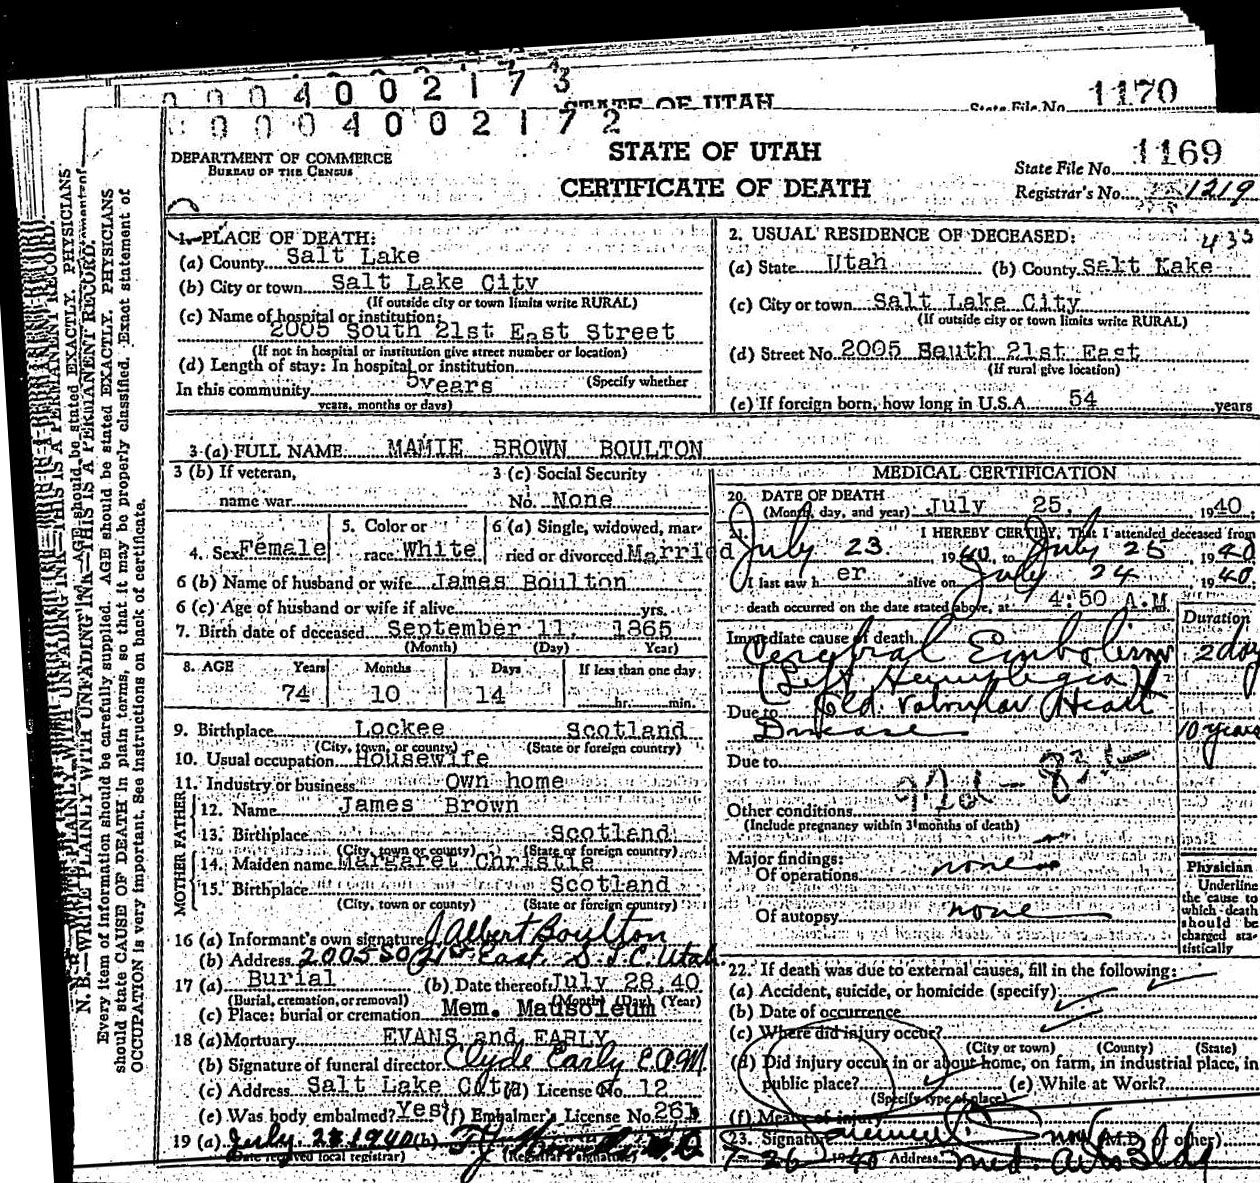 0004002173
STATE OF UTAH
State File No. 1170
0004002172
DEPARTMENT OF COMMERCE
BUREAU OF THE CENSUS
STATE OF UTAH
CERTIFICATE OF DEATH
State File No. 1169
Registrar's No. 1219
N. B.—WRITE PLAINLY WITH UNFADING INK—THIS IS A PERMANENT RECORD.
Every item of information should be carefully supplied. AGE should be stated EXACTLY. PHYSICIANS
should state CAUSE OF DEATH in plain terms, so that it may be properly classified. Exact statement of
OCCUPATION is very important. See instructions on back of certificate.
1. PLACE OF DEATH:
(a) County Salt Lake
(b) City or town Salt Lake City
(If outside city or town limits write RURAL)
(c) Name of hospital or institution:
2005 South 21st East Street
(If not in hospital or institution give street number or location)
(d) Length of stay: In hospital or institution
(Specify whether
In this community 5years
years, months or days)
2. USUAL RESIDENCE OF DECEASED: 435
(a) State Utah (b) County Salt Kake
(c) City or town Salt Lake City
(If outside city or town limits write RURAL)
(d) Street No. 2005 South 21st East
(If rural give location)
(e) If foreign born, how long in U.S.A. 54 years
3 (a) FULL NAME MAMIE BROWN BOULTON
3 (b) If veteran,
name war
3 (c) Social Security
No. None
4. Sex Female
5. Color or
race White
6 (a) Single, widowed, mar-
ried or divorced Married
6 (b) Name of husband or wife James Boulton
6 (c) Age of husband or wife if alive yrs.
7. Birth date of deceased September 11, 1865
(Month) (Day) Year)
8. AGE Years Months Days If less than one day
74 10 14 hr. min.
9. Birthplace Lockee Scotland
(City, town, or county) (State or foreign country)
10. Usual occupation Housewife
11. Industry or business Own home
FATHER
12. Name James Brown
13. Birthplace Scotland
(City, town or county) (State or foreign country)
MOTHER
14. Maiden name Margaret Christie
15. Birthplace Scotland
(City, town or county) (State or foreign country)
16 (a) Informant's own signature J Albert Boulton
(b) Address 2005 So 21st East S.L.C. Utah
17 (a) Burial (b) Date thereof July 28, 40
(Burial, cremation, or removal) (Month) (Day) (Year)
(c) Place: burial or cremation Mem. Mausoleum
18 (a) Mortuary EVANS and EARLY
(b) Signature of funeral director Clyde Early
(c) Address Salt Lake City (d) License No. 12
(e) Was body embalmed? Yes (f) Embalmer's License No. 261
19 (a) July 1940 (b)
(Date received local registrar) (Registrar's signature)
MEDICAL CERTIFICATION
20. DATE OF DEATH
(Month, day, and year) July 25, 1940
21. I HEREBY CERTIFY, That I attended deceased from
July 23 1940, to July 25 1940
I last saw her alive on July 24 1940
death occurred on the date stated above, at 4:50 A.M
Duration
Immediate cause of death
Cerebral Embolism 2 day
(Left Hemiplegia)
Due to Old Valvular Heart
Disease 10 years
Due to
Other conditions
(Include pregnancy within 3 months of death)
Major findings:
Of operations none
Of autopsy none
Physician
Underline
the cause to
which death
should be
charged sta-
tistically
22. If death was due to external causes, fill in the following:
(a) Accident, suicide, or homicide (specify)
(b) Date of occurrence
(c) Where did injury occur?
(City or town) (County) (State)
(d) Did injury occur in or about home, on farm, in industrial place, in
public place? (e) While at Work?
(Specify type of place)
(f) Means of injury
23. Signature (M.D. or other)
7-26 1940 Address Med. Arts Bldg